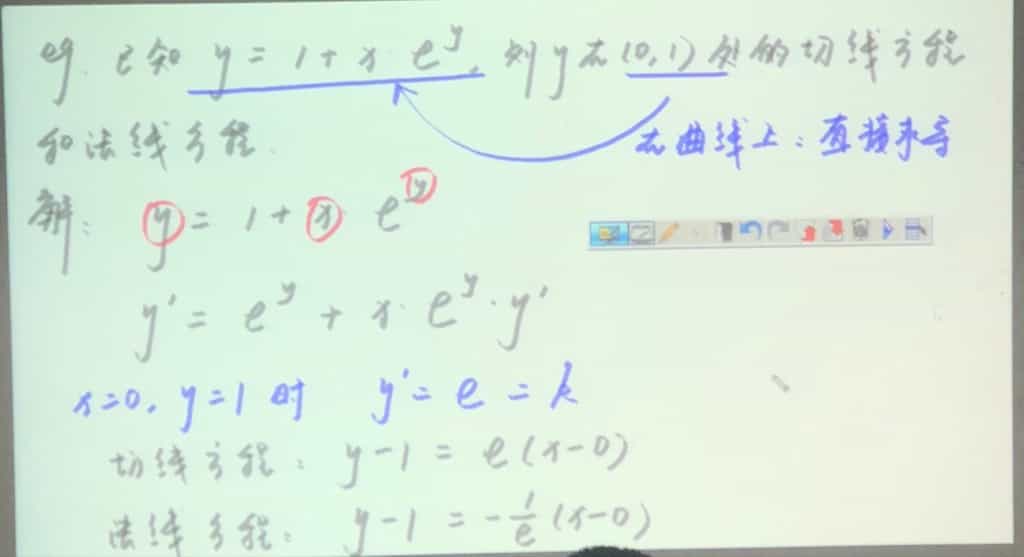 eg. 已知 y = 1 + x · e^y, 则 y 在 (0,1) 处的切线方程
和法线方程.
在曲线上：直接求导
解： y = 1 + x e^y
y' = e^y + x · e^y · y'
x=0, y=1 时 y' = e = k
切线方程： y-1 = e(x-0)
法线方程： y-1 = -1/e (x-0)